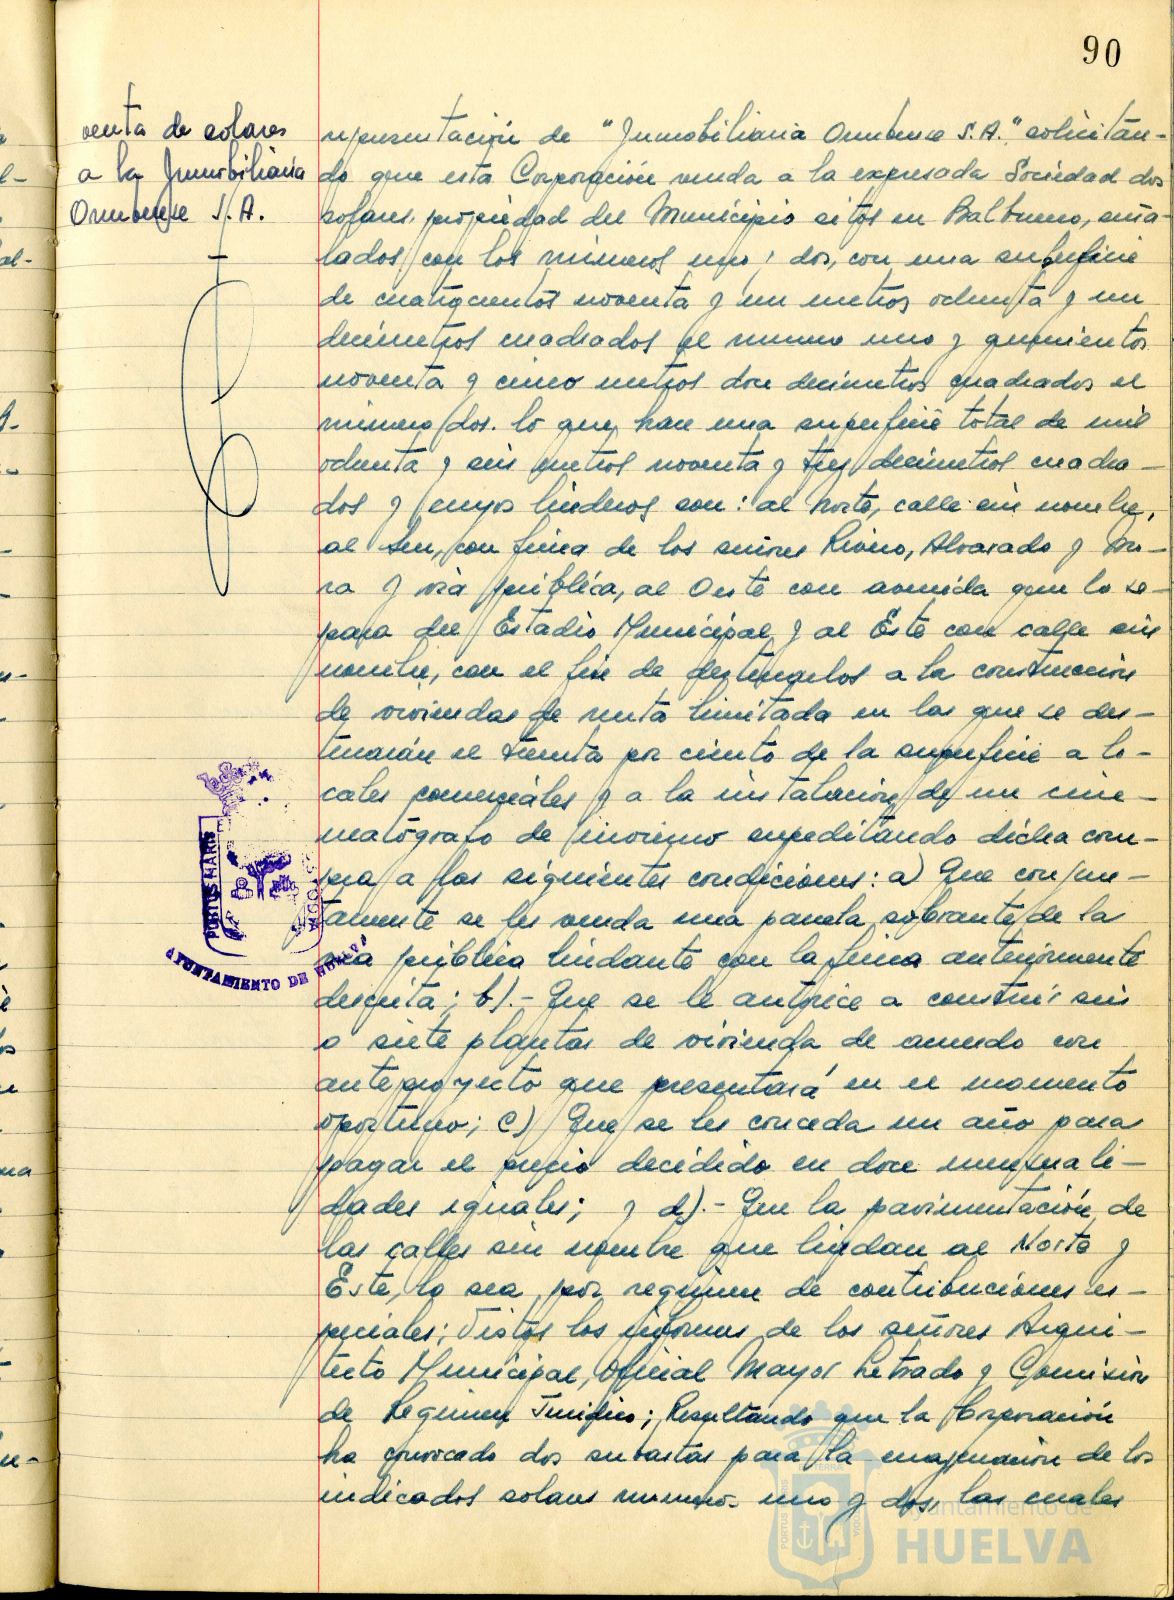 90
venta de solares
a la Inmobiliaria
Onubense S.A.
representación de "Inmobiliaria Onubense S.A." solicitan-
do que esta Corporación venda a la expresada Sociedad dos
solares, propiedad del Municipio sitos en Balbueno, seña-
lados con los números uno y dos, con una superficie
de cuatrocientos noventa y un metros ochenta y un
decímetros cuadrados el número uno y quinientos
noventa y cinco metros doce decímetros cuadrados el
número dos. lo que hace una superficie total de mil
ochenta y seis metros noventa y tres decímetros cuadra-
dos y cuyos linderos son: al Norte, calle sin nombre,
al Sur, con finca de los señores Riono, Alvarado y Mo-
ra y vía pública, al Oeste con avenida que lo se-
para del Estadio Municipal y al Este con calle sin
nombre, con el fin de destinarlos a la construcción
de viviendas de renta limitada en las que se des-
tinarán el treinta por ciento de la superficie a lo-
cales comerciales y a la instalación de un cine-
matógrafo de invierno supeditando dicha com-
pra a las siguientes condiciones: a) Que conjun-
tamente se les venda una parcela sobrante de la
vía pública lindante con la finca anteriormente
descrita; b).- Que se le autorice a construir seis
o siete plantas de vivienda de acuerdo con
anteproyecto que presentará en el momento
oportuno; c) Que se les conceda un año para
pagar el precio decidido en doce mensuali-
dades iguales; y d).- Que la pavimentación de
las calles sin nombre que lindan al Norte y
Este, lo sea por regimen de contribuciones es-
peciales; Vistos los informes de los señores Arqui-
tecto Municipal, Oficial Mayor Letrado y Comisión
de Regimen Jurídico; Resultando que la Corporación
ha convocado dos subastas para la enajenación de los
indicados solares números uno y dos, las cuales
PORTUS MARIS
AYUNTAMIENTO DE HUELVA
Ayuntamiento de
HUELVA